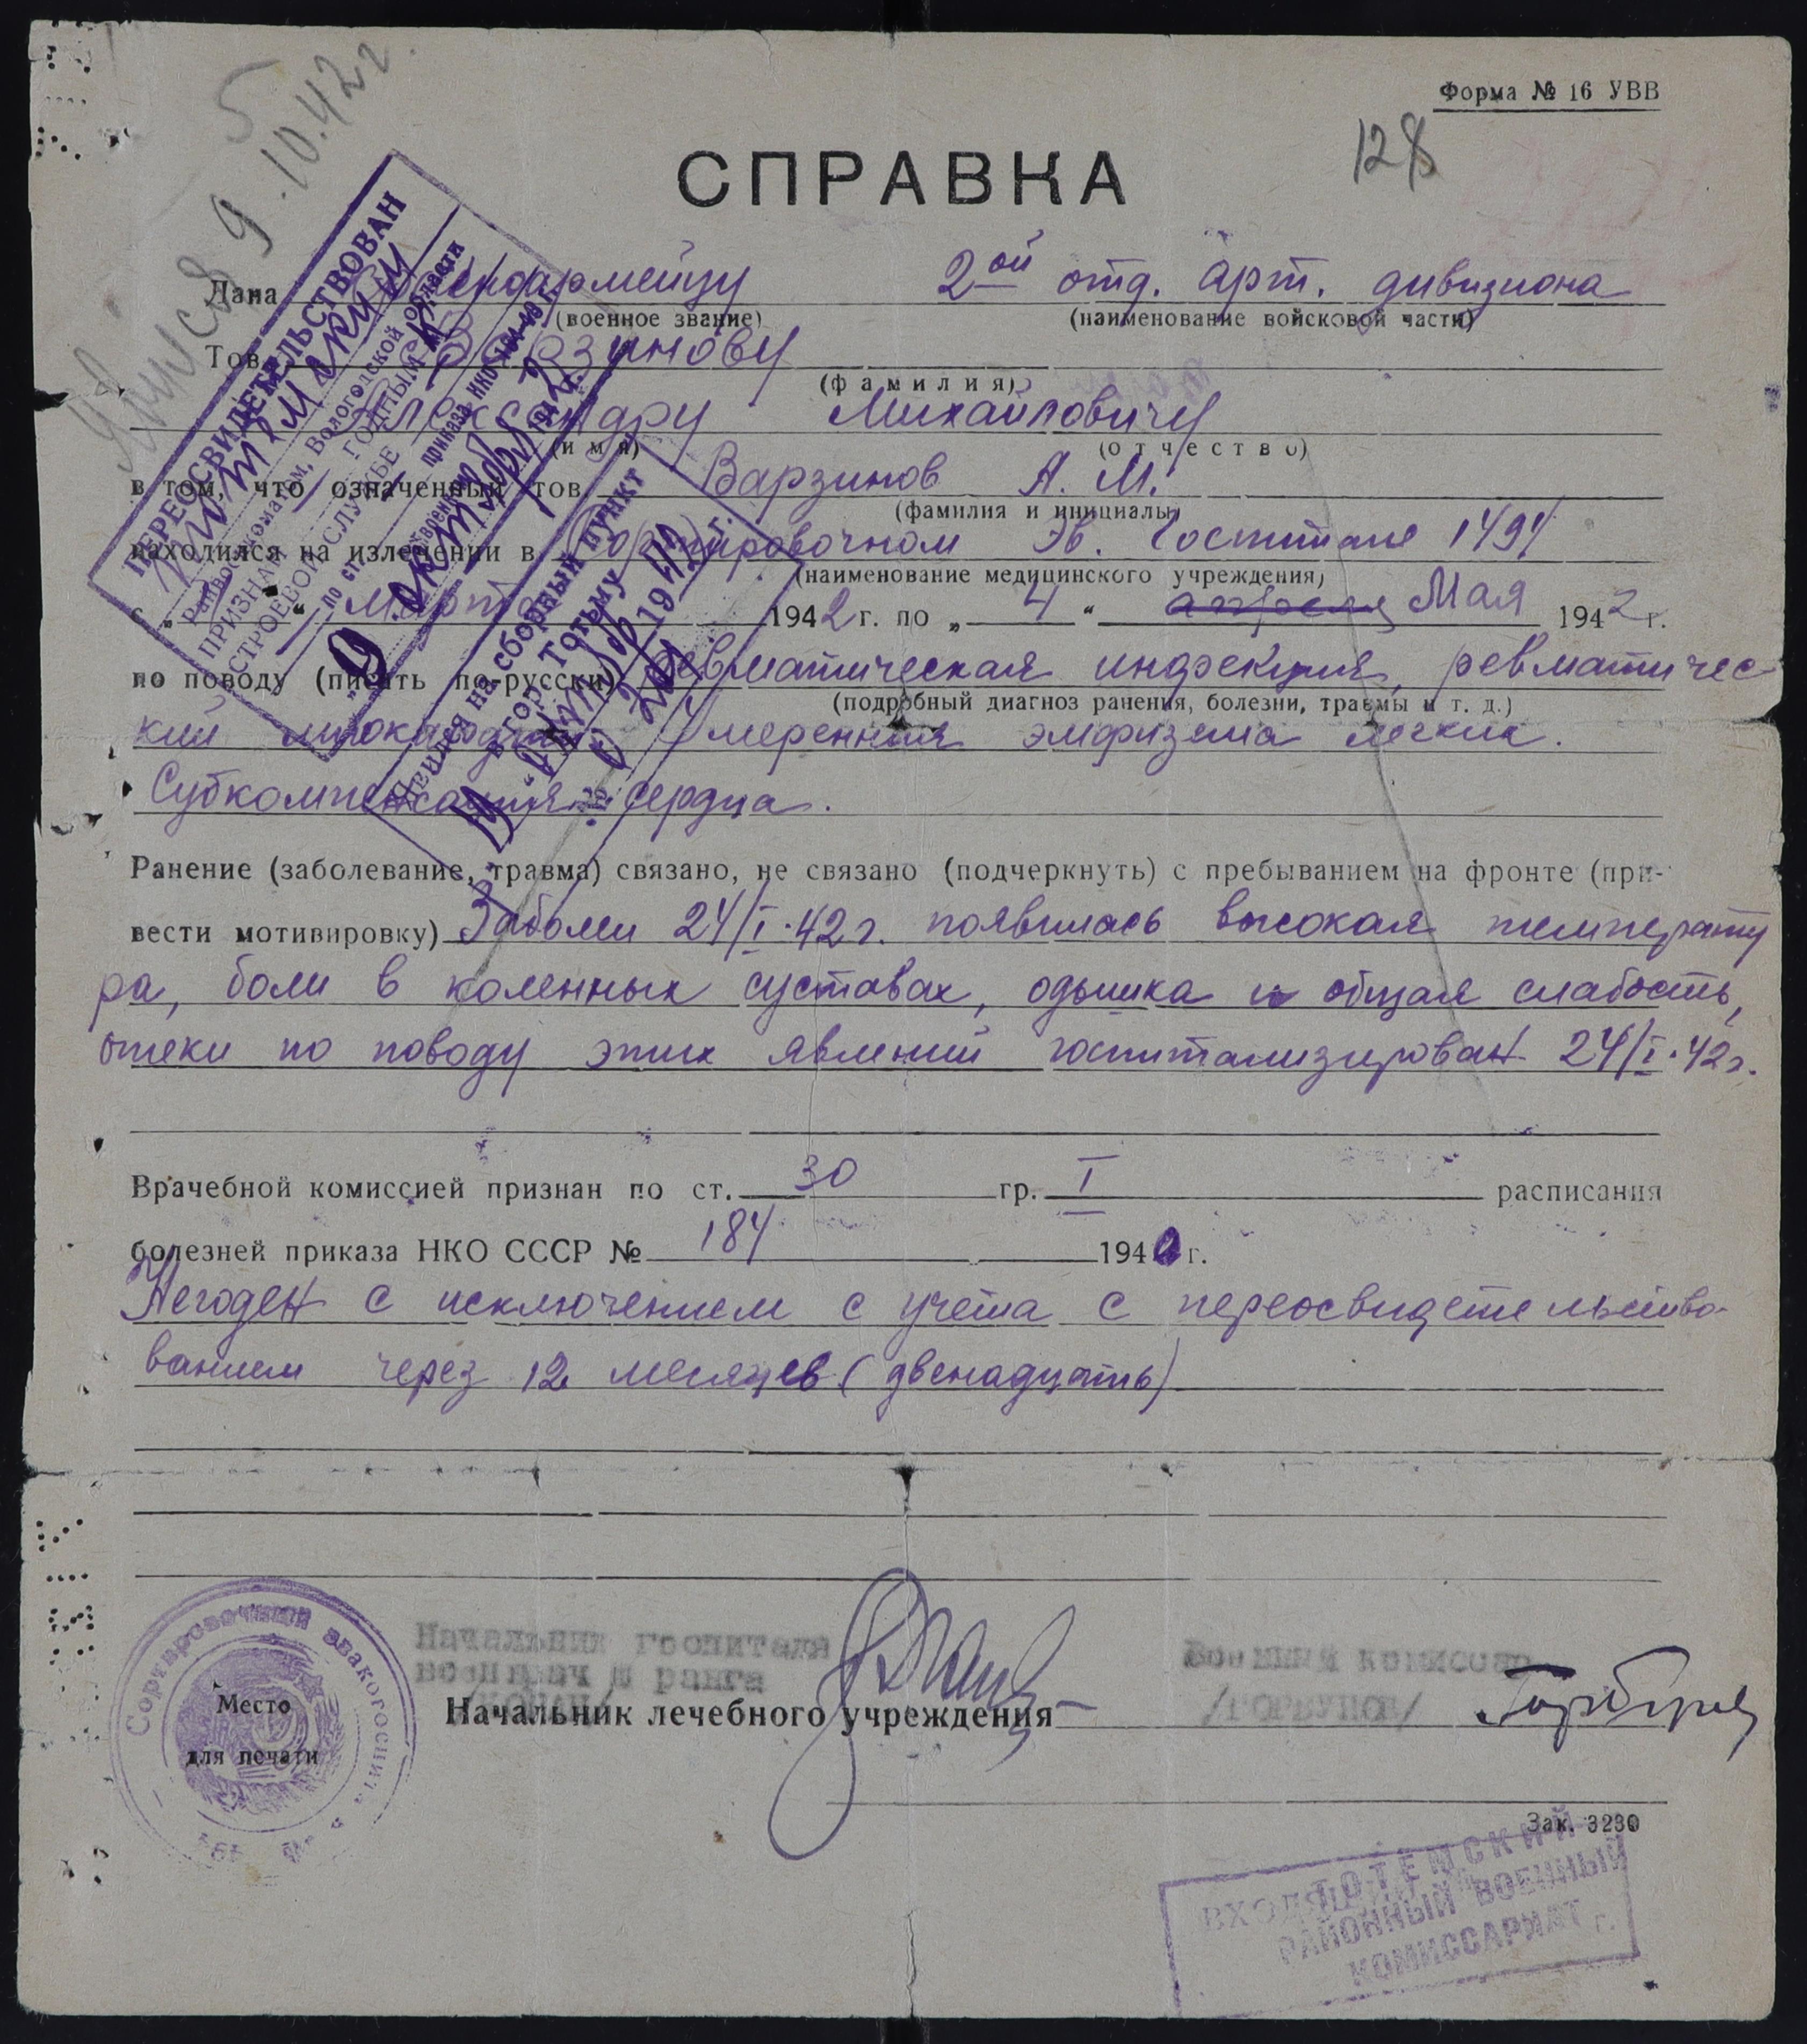 Форма № 16 УВВ
128
5
Явися 9.10.42 г.
СПРАВКА
Дана Красноармейцу 2ой отд. арт. дивизиона
(военное звание) (наименование войсковой части)
Тов. Варзинову
(фамилия)
Александру Михайловичу
(имя) (отчество)
в том, что означенный тов Варзинов А. М.
(фамилия и инициалы)
находился на излечении в Сортировочном Эв. Госпитале 1494
(наименование медицинского учреждения)
с „ “ Марта 1942 г. по „ 4 “ апреля Мая 1942 г.
по поводу (писать по-русски) Ревматическая инфекция, ревматичес
(подробный диагноз ранения, болезни, травмы и т. д.)
кий миокардит. Умеренная эмфизема легких.
Субкомпенсация сердца.
Ранение (заболевание, травма) связано, не связано (подчеркнуть) с пребыванием на фронте (при-
вести мотивировку) Заболел 24/I·42г. появилась высокая температу
ра, боли в коленных суставах, одышка и общая слабость,
отеки по поводу этих явлений госпитализирован 24/I·42г.
Врачебной комиссией признан по ст. 30 гр. I расписания
болезней приказа НКО СССР № 184 1940 г.
Негоден с исключением с учета с переосвидетельство-
ванием через 12 месяцев (двенадцать)
Начальник госпиталя
военврач ранга
Военный комиссар
/ГОРБУНОВ/
Начальник лечебного учреждения
Место
для печати
Сортировочный эвакогоспиталь
Зак. 3230
ПЕРЕОСВИДЕТЕЛЬСТВОВАН
Тотемским
Райвоенкоматом, Вологодской области
ПРИЗНАН ГОДНЫМ К
СТРОЕВОЙ СЛУЖБЕ
по ст. приказа НКО 184-40 г.
„9“ октября 1942 г.
Явился на сборный пункт
в гор. Тотьму
19 42 г.
ТОТЕМСКИЙ
РАЙОННЫЙ ВОЕННЫЙ
КОМИССАРИАТ